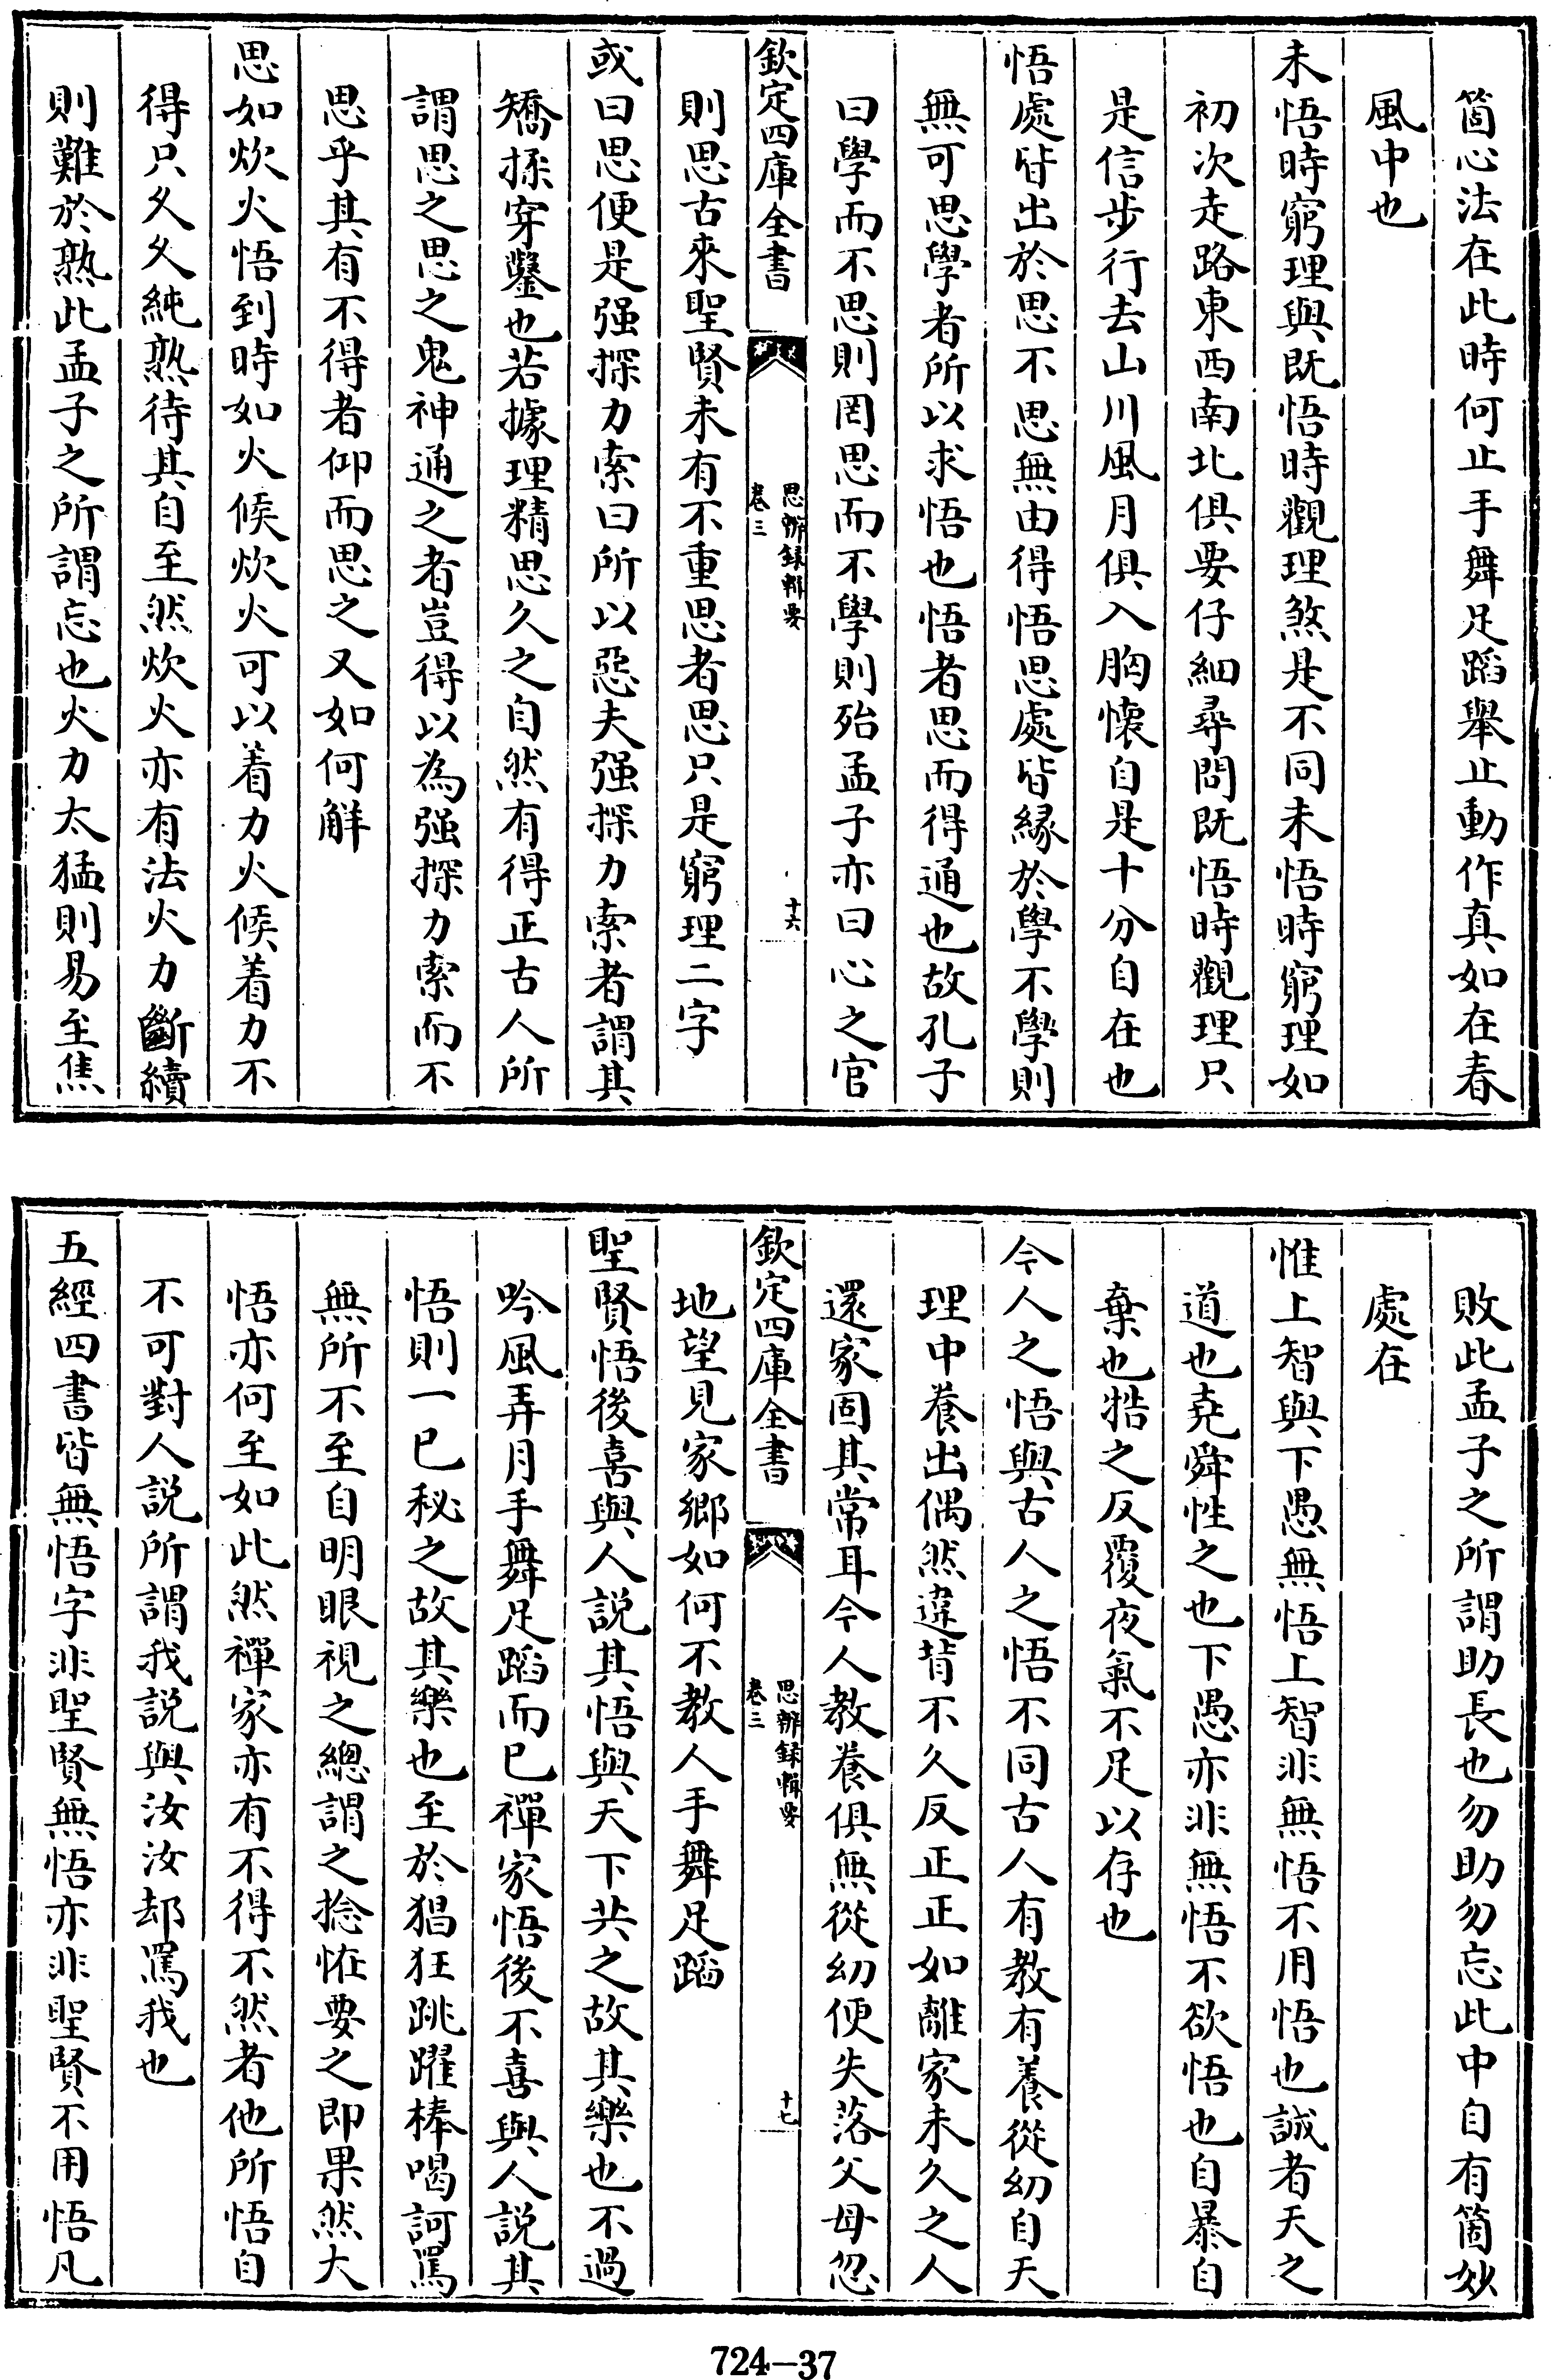 箇心法在此時何止手舞足蹈舉止動作真如在春
風中也
未悟時窮理與既悟時觀理煞是不同未悟時窮理如
初次走路東西南北俱要仔細尋問既悟時觀理只
是信步行去山川風月俱入胸懷自是十分自在也
悟處皆出於思不思無由得悟思處皆緣於學不學則
無可思學者所以求悟也悟者思而得通也故孔子
曰學而不思則罔思而不學則殆孟子亦曰心之官
欽定四庫全書
思辨録輯要
卷三
十六
則思古來聖賢未有不重思者思只是窮理二字
或曰思便是强探力索曰所以惡夫强探力索者謂其
矯揉穿鑿也若據理精思久之自然有得正古人所
謂思之思之鬼神通之者豈得以為强探力索而不
思乎其有不得者仰而思之又如何解
思如炊火悟到時如火候炊火可以着力火候着力不
得只久久純熟待其自至然炊火亦有法火力斷續
則難於熟此孟子之所謂忘也火力太猛則易至焦
敗此孟子之所謂助長也勿助勿忘此中自有箇妙
處在
惟上智與下愚無悟上智非無悟不用悟也誠者天之
道也堯舜性之也下愚亦非無悟不欲悟也自暴自
棄也牿之反覆夜氣不足以存也
今人之悟與古人之悟不同古人有教有養從幼自天
理中養出偶然違背不久反正正如離家未久之人
還家固其常耳今人教養俱無從幼便失落父母忽
欽定四庫全書
思辨録輯要
卷三
十七
地望見家鄉如何不教人手舞足蹈
聖賢悟後喜與人説其悟與天下共之故其樂也不過
吟風弄月手舞足蹈而已禪家悟後不喜與人説其
悟則一已秘之故其樂也至於猖狂跳躍棒喝訶罵
無所不至自明眼視之總謂之捻怪要之即果然大
悟亦何至如此然禪家亦有不得不然者他所悟自
不可對人説所謂我説與汝汝却罵我也
五經四書皆無悟字非聖賢無悟亦非聖賢不用悟凡
724-37